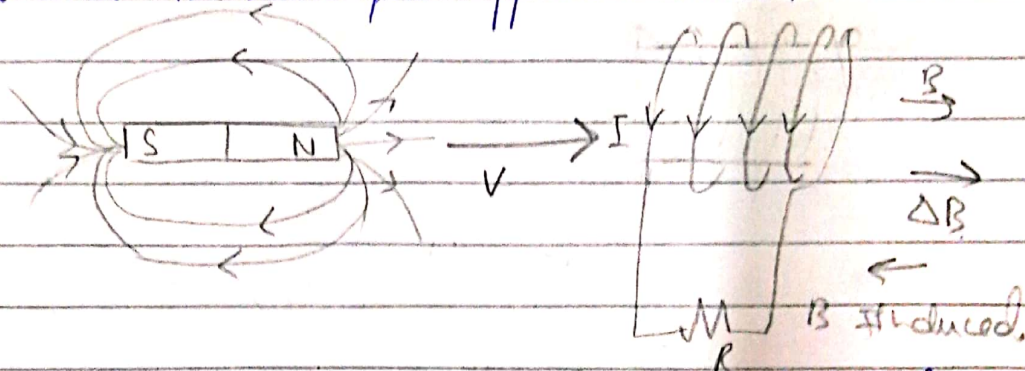 S N
V
I
B
ΔB
B Induced.
R